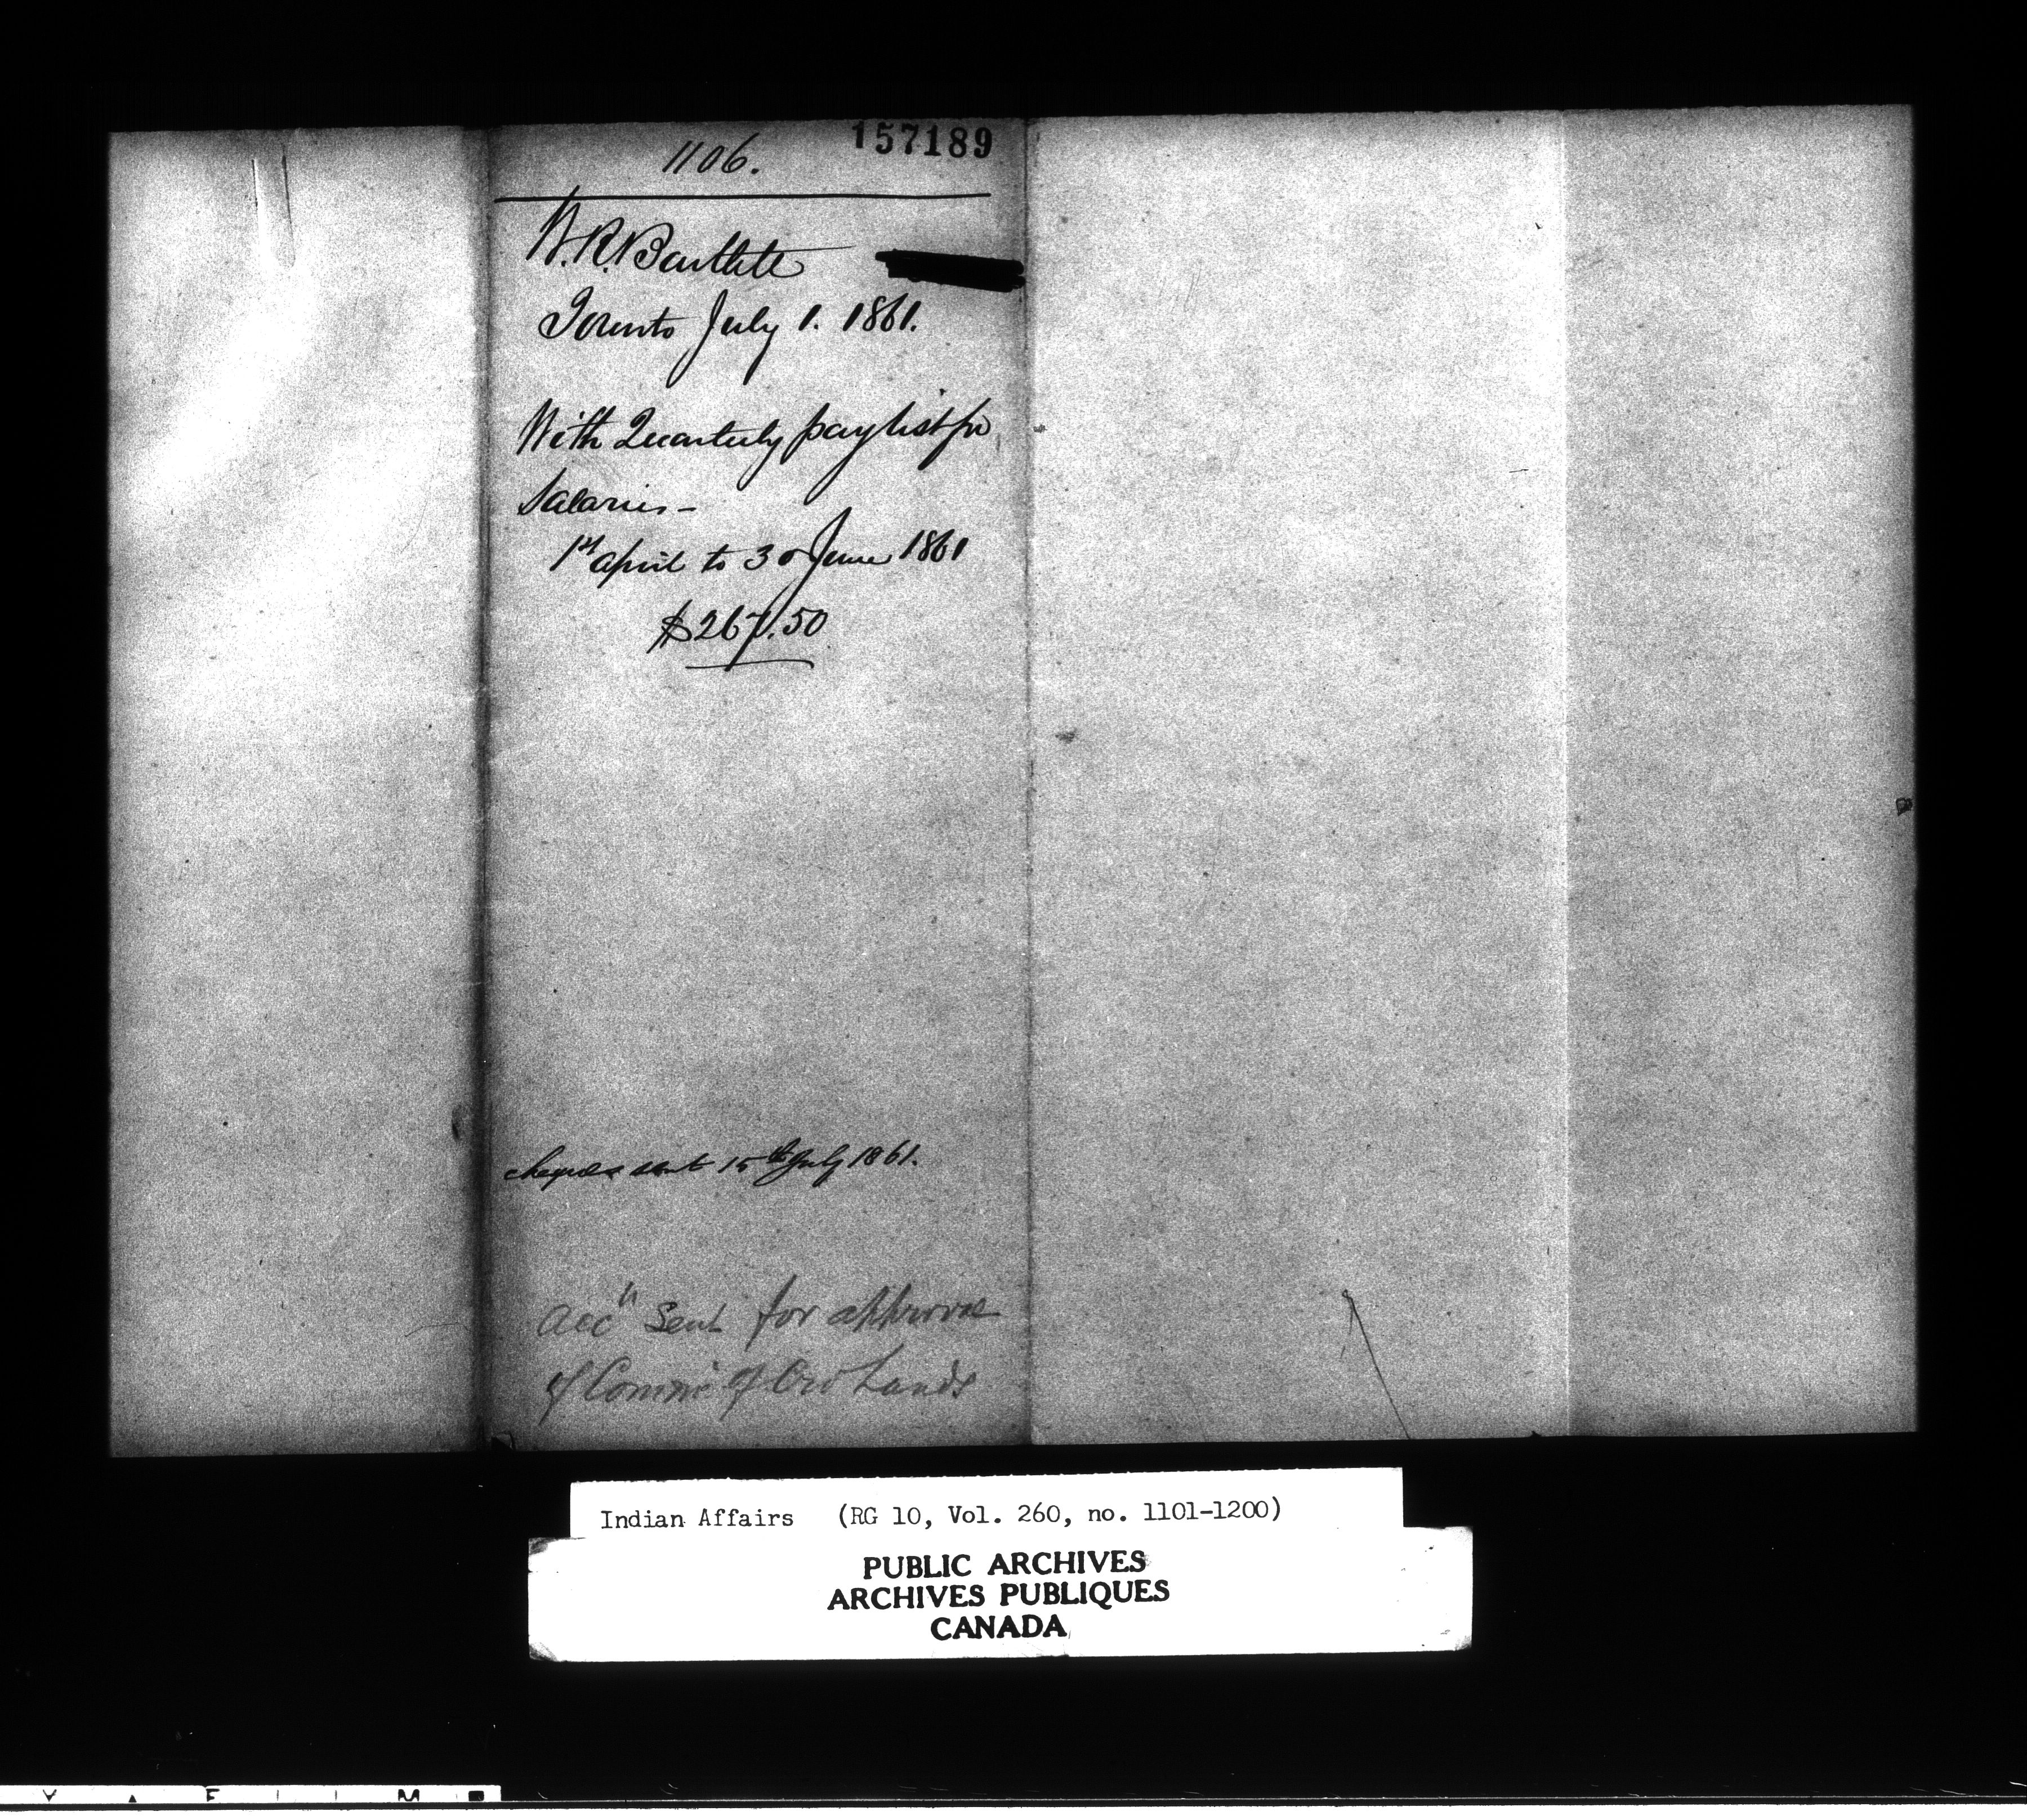 157189
1106.
W. R. Bartlett
Toronto July 1. 1861.
With Quarterly pay list for
Salaries -
1st April to 30 June 1861
$267.50
cheques sent 15th July 1861.
acc sent for approval
of Commr of Cro Lands
Indian Affairs (RG 10, Vol. 260, no. 1101-1200)
PUBLIC ARCHIVES
ARCHIVES PUBLIQUES
CANADA